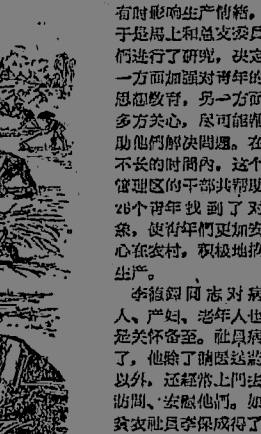 有时影响生产情绪，
于是马上和总支委员
们进行了研究，决定
一方面加强对青年的
思想教育，另一方面
多方关心，尽可能帮
助他们解决问题。在
不长的时间内，这个
管理区的干部共帮助
26个青年找到了对
象，使青年们更加安
心在农村，积极地搞
生产。
李德鐸同志对病
人、产妇、老年人也
是关怀备至。社员病
了，他除了请医送药
以外，还经常上门去
访問、安慰他们。如
贫农社员李保成得了